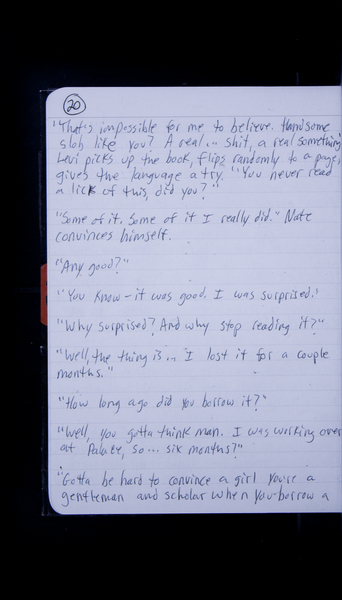 20
"That's impossible for me to believe. Handsome
slob like you? A real... shit, a real something
Levi picks up the book, flips randomly to a page,
gives the language a try. "You never read
a lick of this, did you?"
"Some of it. Some of it I really did." Nate
convinces himself.
"Any good?"
"You know - it was good. I was surprised."
"Why surprised? And why stop reading it?"
"Well, the thing is... I lost it for a couple
months."
"How long ago did you borrow it?"
"Well, you gotta think man. I was working over
at Palace, so... six months?"
"Gotta be hard to convince a girl you're a
gentleman and scholar when you borrow a